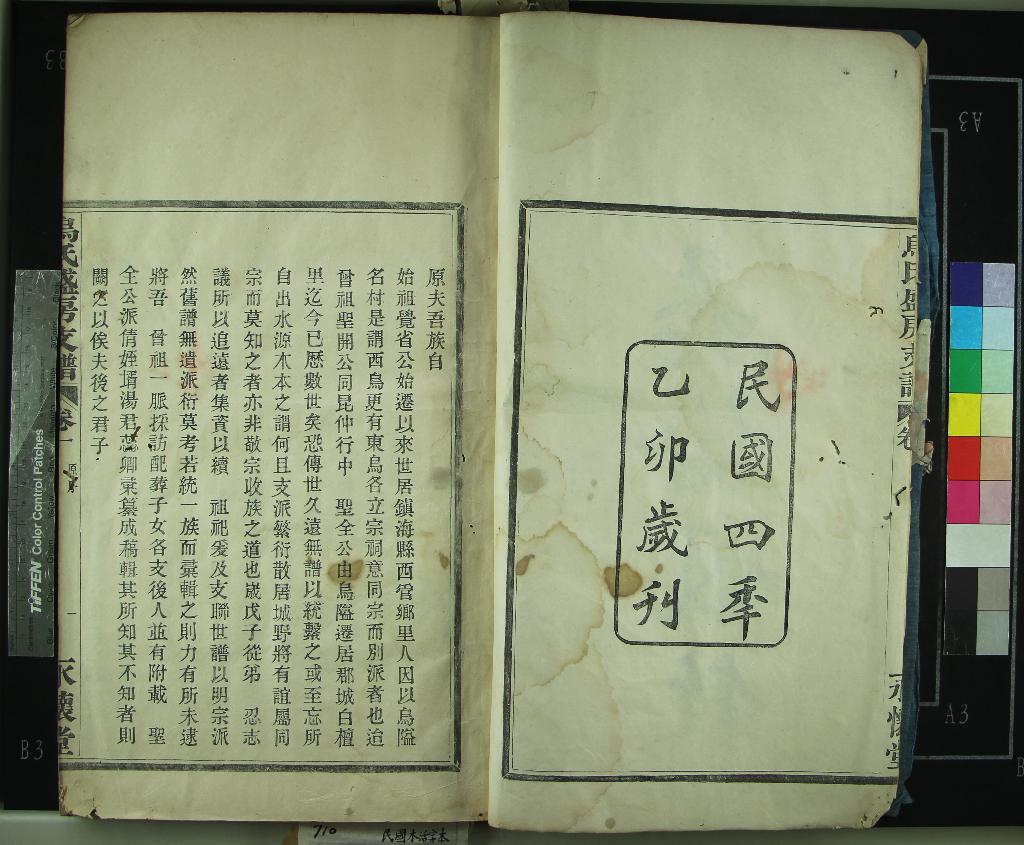 民國四年
乙卯歲刋
烏氏盛房支譜
卷
永懷堂
原夫吾族自
始祖覺省公始遷以來世居鎭海縣西管鄉里人因以烏隘
名村是謂西烏更有東烏各立宗祠意同宗而別派者也迨
曾祖聖開公同昆仲行中 聖全公由烏隘遷居郡城白檀
里迄今已歷數世矣恐傳世久遠無譜以統繫之或至忘所
自出水源木本之謂何且支派繁衍散居城野將有誼屬同
宗而莫知之者亦非敬宗收族之道也歲戊子從弟 忍志
議所以追遠者集資以續 祖祀爰及支聯世譜以明宗派
然舊譜無遺派衍莫考若統一族而彙輯之則力有所未逮
將吾 曾祖一脈採訪配葬子女各支後人並有附載 聖
全公派倩姪壻湯君懋卿彙纂成稿輯其所知其不知者則
闕之以俟夫後之君子
烏氏盛房支譜
卷一
原序
一
永懷堂
TIFFEN Color Control Patches
B3
A3
A3
B3
710
民國木活字本